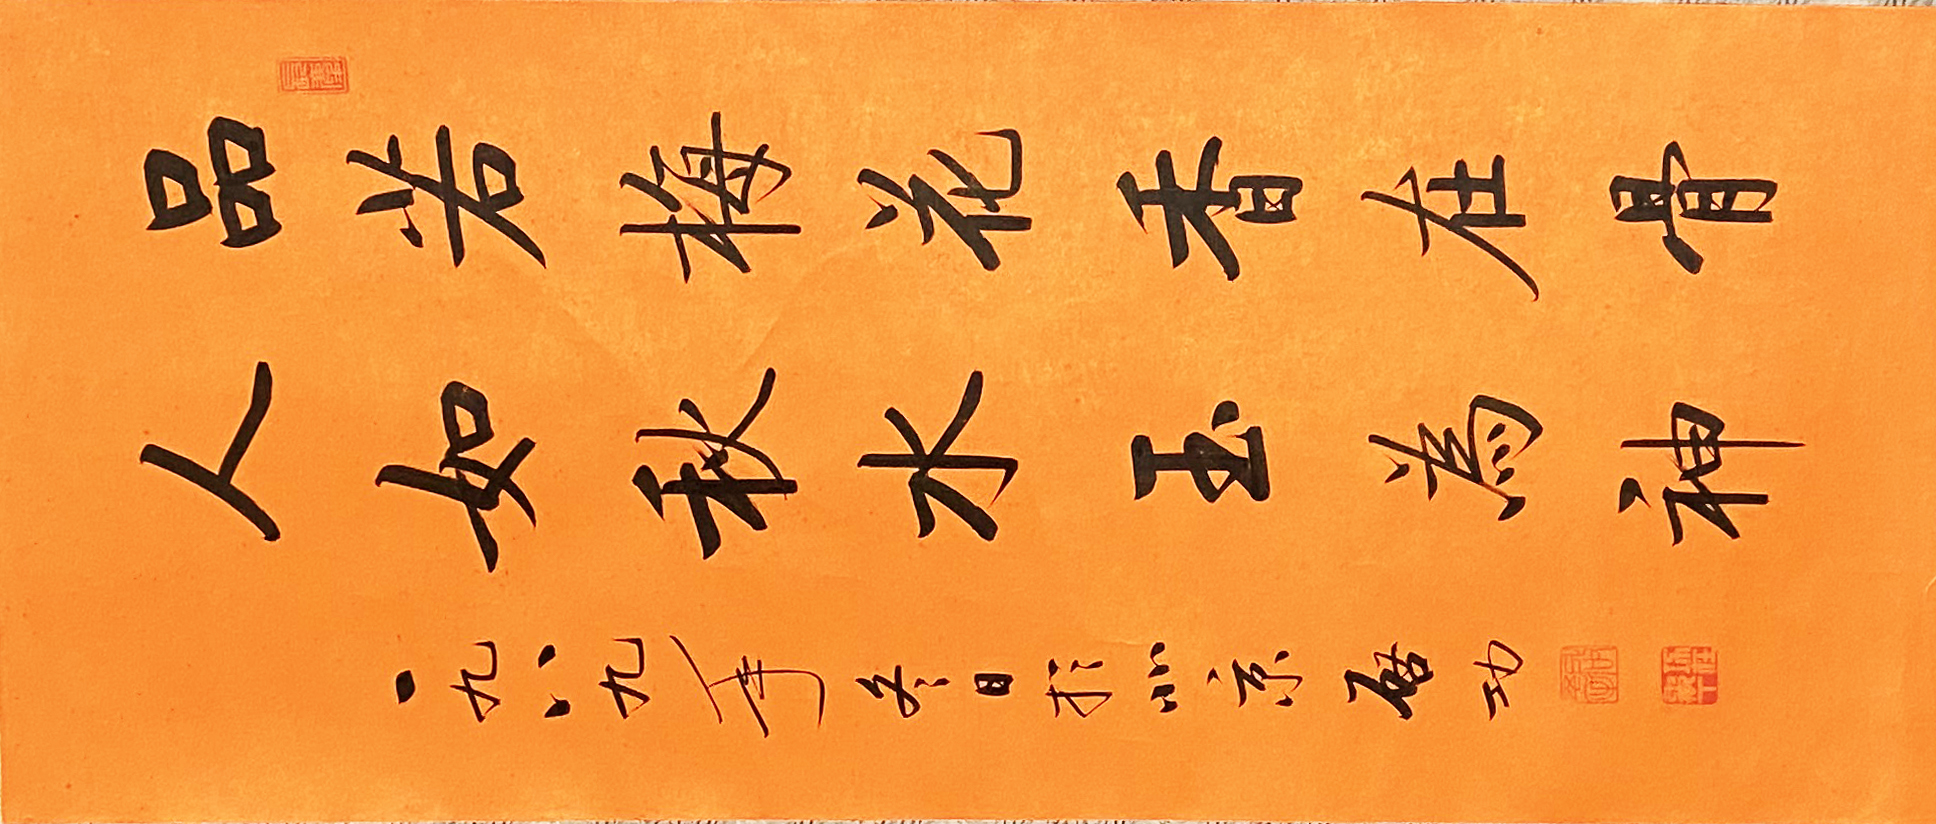 品若梅花香在骨
人如秋水玉為神
一九八九年冬日於北京 启功